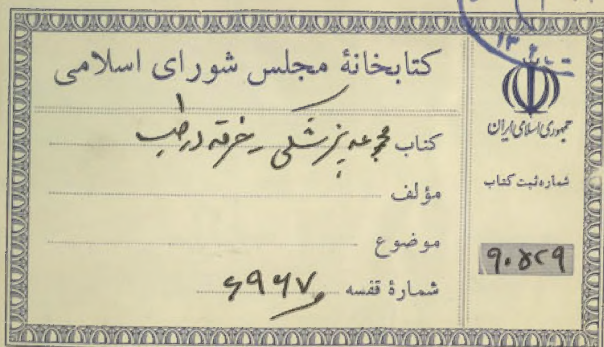 کتابخانهٔ مجلس شورای اسلامی
کتاب مجموعه پزشکی - در طب
مؤلف
موضوع
شمارهٔ قفسه ۶۹۶۷
جمهوری اسلامی ایران
شماره ثبت کتاب
۹۰۵۲۹